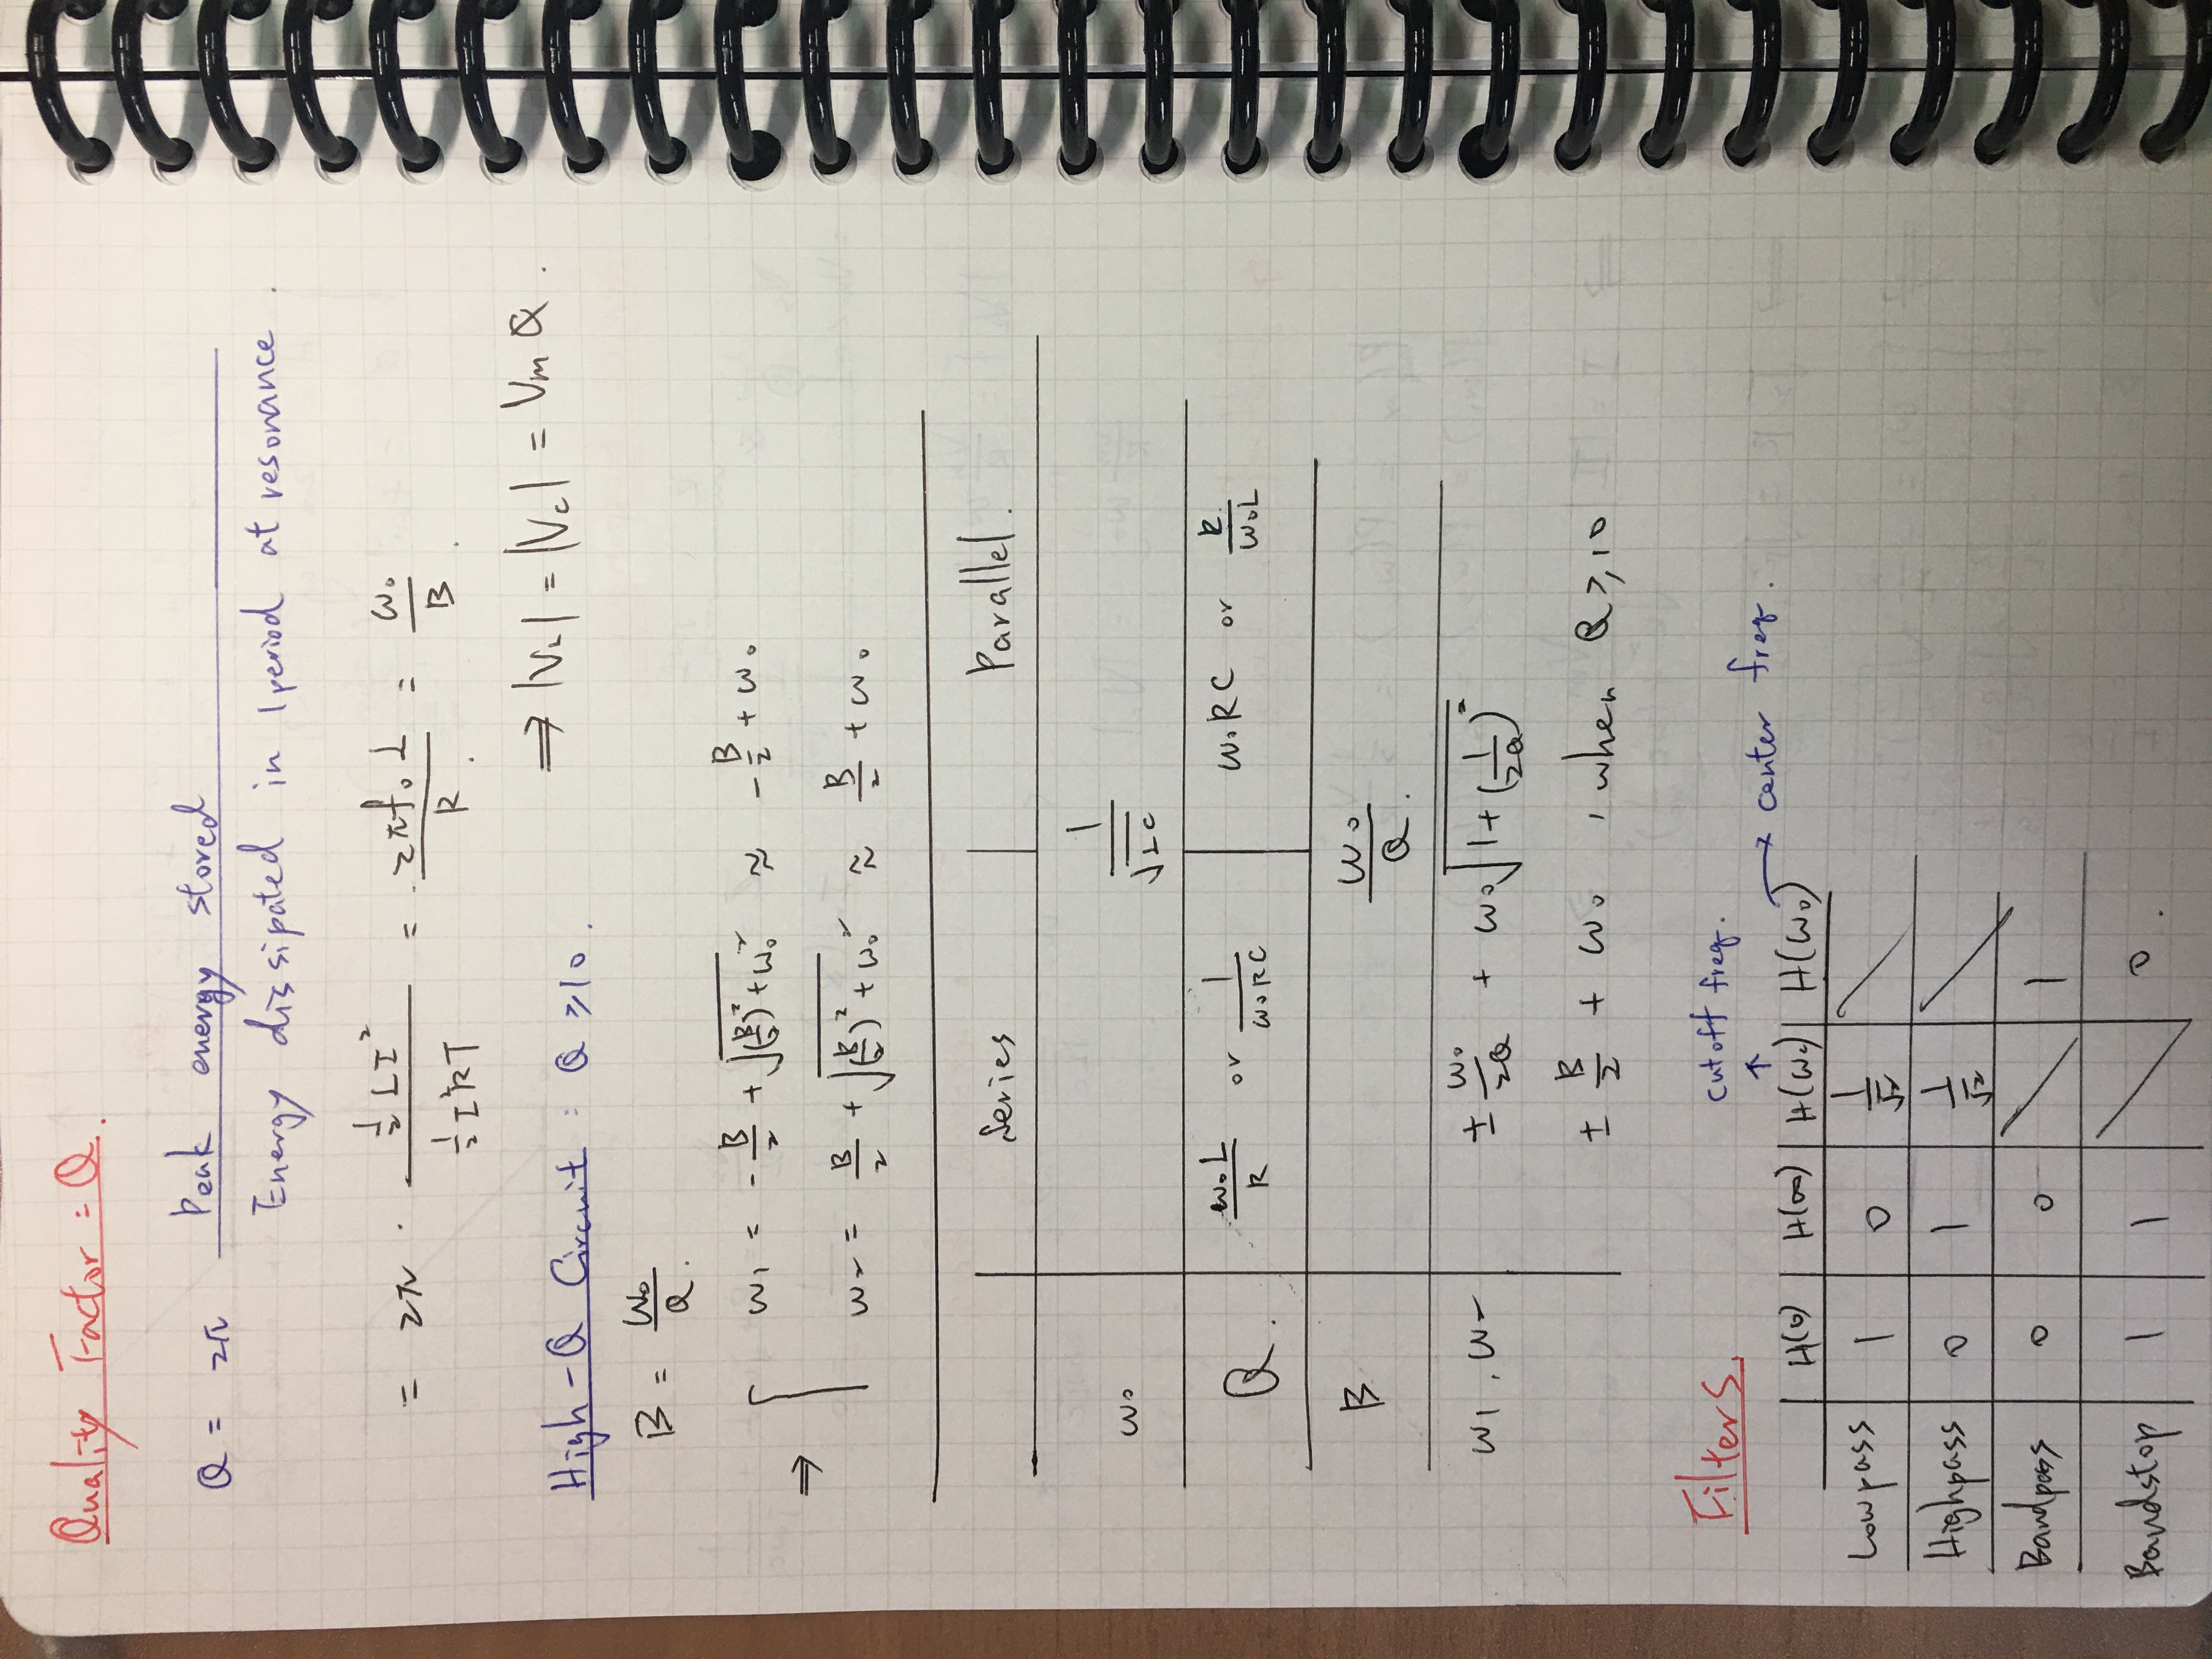 Quality Factor = Q.
Q = 2π Peak energy stored / Energy dissipated in 1 period at resonance.
= 2π · (½ L I²) / (½ I² R T) = 2πf₀L / R = ω₀ / B.
⇒ |V_L| = |V_C| = V_m Q.
High-Q Circuit : Q ≥ 10.
B = ω₀ / Q.
ω₁ = -B/2 + √((B/2)² + ω₀²) ≈ -B/2 + ω₀
⇒ {
ω₂ = B/2 + √((B/2)² + ω₀²) ≈ B/2 + ω₀
Series | Parallel.
ω₀ | 1/√(LC)
Q. | ω₀L/R or 1/(ω₀RC) | ω₀RC or R/(ω₀L)
B | ω₀/Q.
ω₁, ω₂ | ± ω₀/2Q + ω₀√(1 + (1/2Q)²)
± B/2 + ω₀ , when Q ≥ 10
Filters.
cutoff freq.
↑
→ center freq.
H(0) | H(∞) | H(ω_c) | H(ω₀)
Lowpass | 1 | 0 | 1/√2 | \
Highpass | 0 | 1 | 1/√2 | \
Bandpass | 0 | 0 | \ | 1
Bandstop | 1 | 1 | \ | 0.